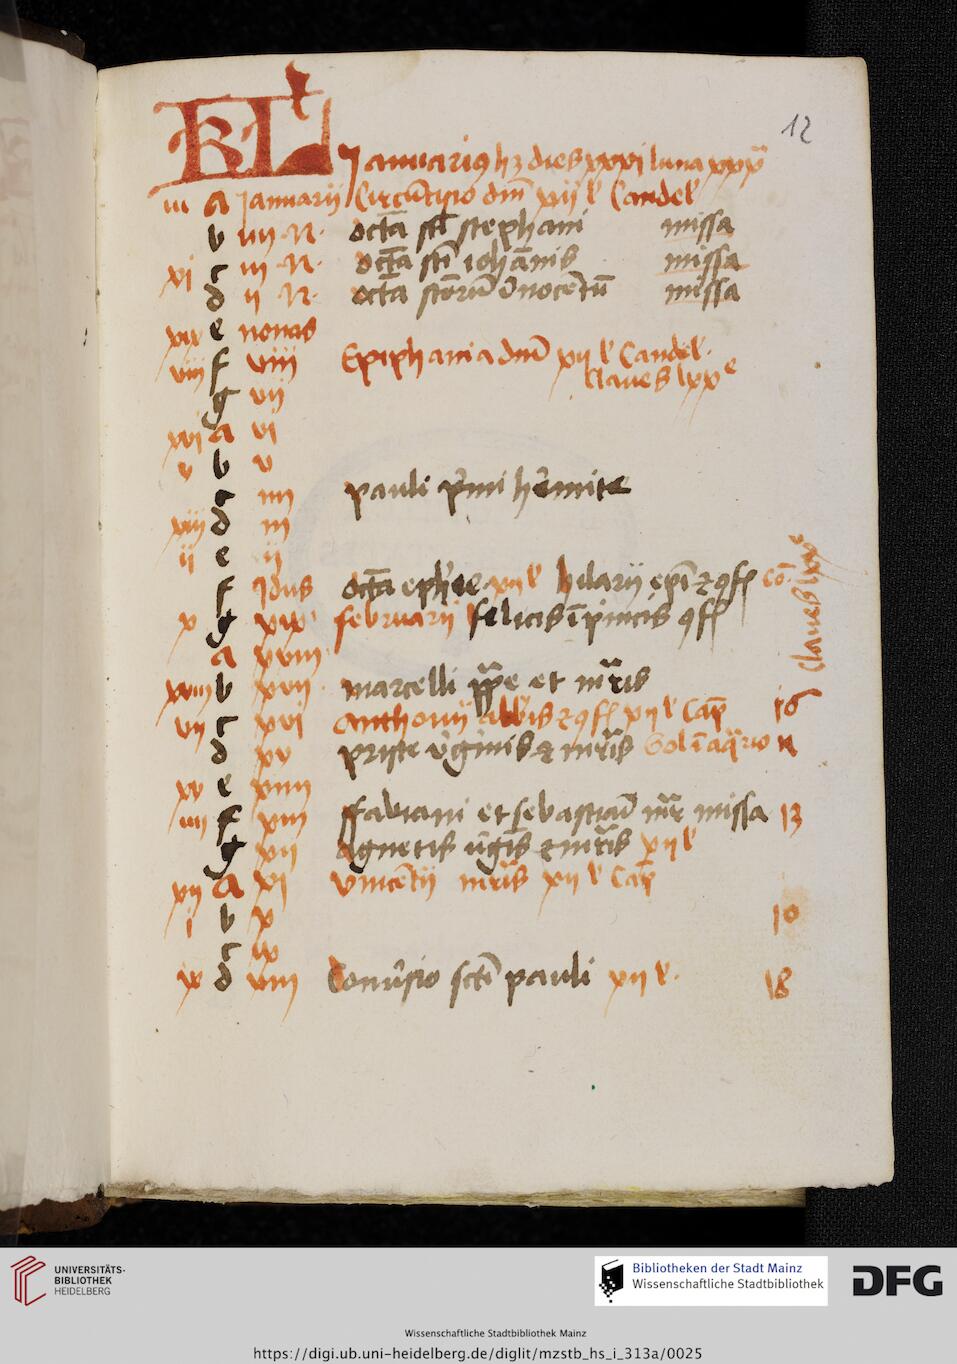 12
KL Januarius hȝ dies xxxi luna xxx
iii a Januarii Circu̅cisio dn̅i xii l' Candel'
b iiii N. octa̅ scti̅ stephani missa
xi c iii N. octa̅ scti̅ ioha̅nis missa
d ii N. octa̅ scto̅ru̅ i̅noce̅tu̅ missa
xix e nonas
viii f viii Epiphania dn̅i xii l' Candel'.
g vii claues lxxe
xvi a vi
v b v
c iiii pauli p̅mi h̅emite
xiii d iii
ii e ii
f Idus octa̅ eph̅ie xii l' hilarii ep̅i ⁊ ꝯf co̅.
claues lxxe
x g xix februarii felicis i̅ pincis ꝯf
a xviii
xviii b xvii marcelli pp̅e et mr̅is
vii c xvi Anthonii abb̅is ⁊ ꝯf xii l' Cap̅ 16
d xv prisce u̅ginis ⁊ mr̅is Sol i̅ aq̅rio
xv e xiiii
iiii f xiii ffabiani et sebastiani̅ mr̅ missa 13
g xii Agnetis u̅gis̅ ⁊ mr̅is xii l'
xii A xi vince̅tii mr̅is xii l' Cap̅
i b x 10
c ix
ix d viii Conu̅sio scti̅ pauli xii l'. 18
UNIVERSITÄTS-
BIBLIOTHEK
HEIDELBERG
Bibliotheken der Stadt Mainz
Wissenschaftliche Stadtbibliothek
DFG
Wissenschaftliche Stadtbibliothek Mainz
https://digi.ub.uni-heidelberg.de/diglit/mzstb_hs_i_313a/0025